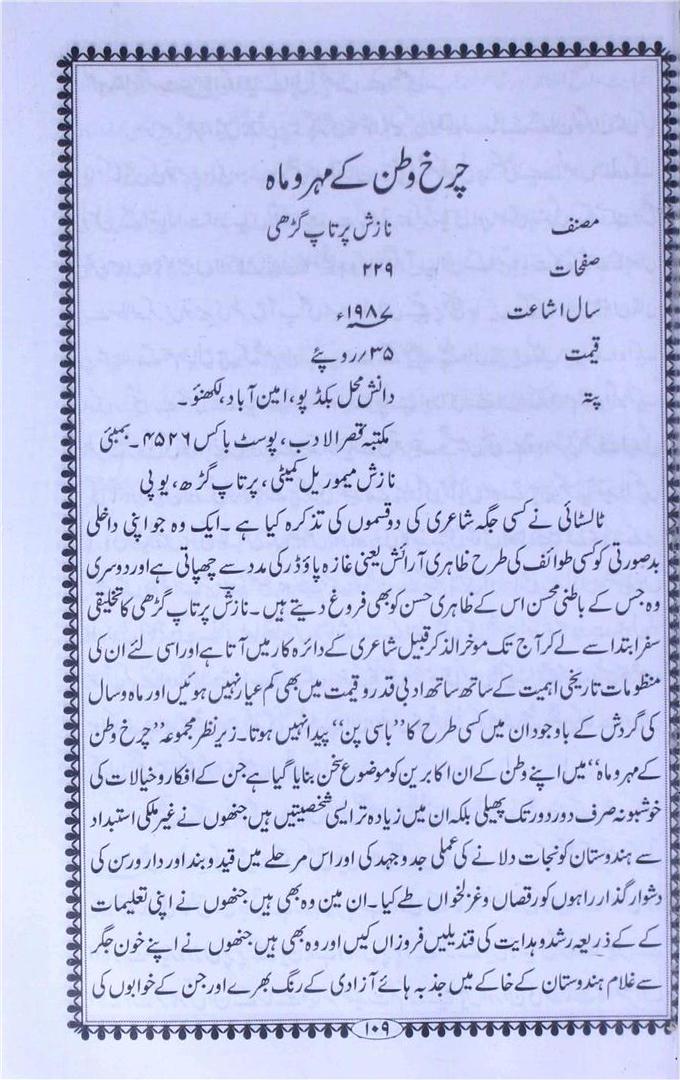 چرخ وطن کے مہر و ماہ
مصنف نازش پرتاپ گڑھی
صفحات ۲۲۹
سال اشاعت ۱۹۸۷ء
قیمت ۳۵/ روپئے
پتہ دانش محل بکڈپو، امین آباد، لکھنؤ۔
مکتبہ قصر الادب، پوسٹ باکس ۴۵۲۶۔ بمبئی
نازش میموریل کمیٹی، پرتاپ گڑھ، یو پی
ٹالسٹائی نے کسی جگہ شاعری کی دو قسموں کی تذکرہ کیا ہے۔ ایک وہ جو اپنی داخلی
بدصورتی کو کسی طوائف کی طرح ظاہری آرائش یعنی غازہ پاؤڈر کی مدد سے چھپاتی ہے اور دوسری
وہ جس کے باطنی محسن اس کے ظاہری حسن کو بھی فروغ دیتے ہیں۔ نازش پرتاپ گڑھی کا تخلیقی
سفر ابتدا سے لے کر آج تک موخر الذکر قبیل شاعری کے دائرہ کار میں آتا ہے اور اسی لئے ان کی
منظومات تاریخی اہمیت کے ساتھ ساتھ ادبی قدر و قیمت میں بھی کم عیار نہیں ہوئیں اور ماہ و سال
کی گردش کے باوجود ان میں کسی طرح کا ’’باسی پن‘‘ پیدا نہیں ہوتا۔ زیر نظر مجموعہ ’’چرخ وطن
کے مہر و ماہ‘‘ میں اپنے وطن کے ان اکابرین کو موضوع سخن بنایا گیا ہے جن کے افکار و خیالات کی
خوشبو نہ صرف دور دور تک پھیلی بلکہ ان میں زیادہ تر ایسی شخصیتیں ہیں جنھوں نے غیر ملکی استبداد
سے ہندوستان کو نجات دلانے کی عملی جدوجہد کی اور اس مرحلے میں قید و بند اور دار و رسن کی
دشوار گذار راہوں کو رقصاں و غزلخواں طے کیا۔ ان مین وہ بھی ہیں جنھوں نے اپنی تعلیمات
کے کے ذریعہ رشد و ہدایت کی قندیلیں فروزاں کیں اور وہ بھی ہیں جنھوں نے اپنے خون جگر
سے غلام ہندوستان کے خاکے میں جذبہ ہائے آزادی کے رنگ بھرے اور جن کے خوابوں کی
۱۰۹